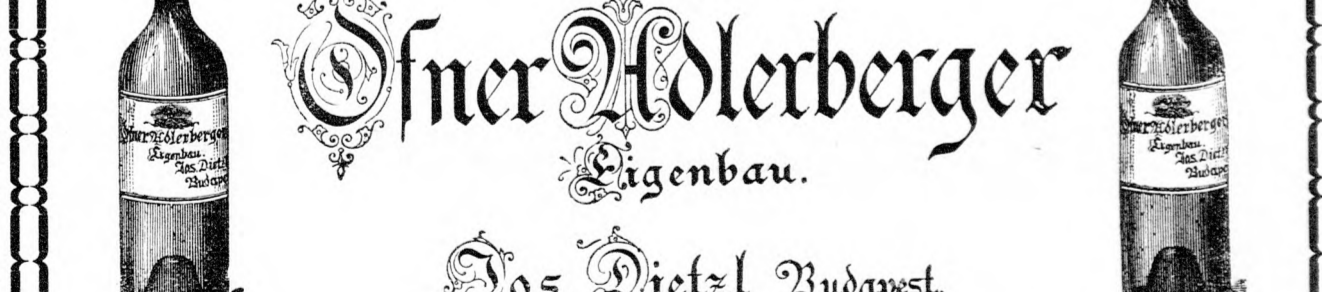 Ofner Adlerberger
Eigenbau.
Jos. Dietzl, Budapest.
Ofner Adlerberger
Eigenbau.
Jos. Dietzl
Budapest
Ofner Adlerberger
Eigenbau.
Jos. Dietzl
Budapest